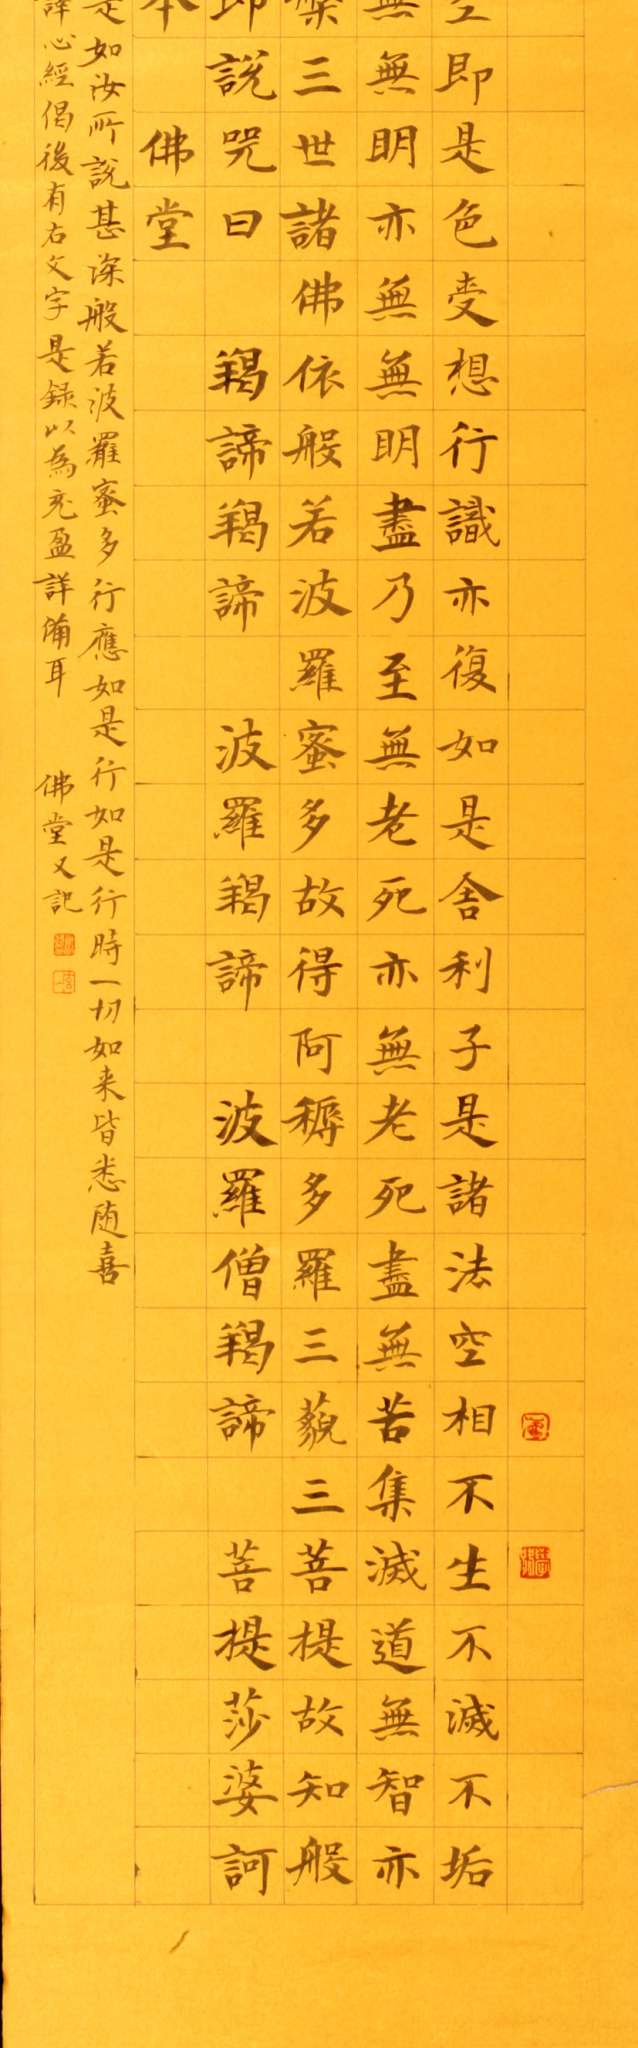 空即是色受想行識亦復如是舍利子是諸法空相不生不滅不垢
無無明亦無無明盡乃至無老死亦無老死盡無苦集滅道無智亦
槃三世諸佛依般若波羅蜜多故得阿耨多羅三藐三菩提故知般
即說咒曰 羯諦羯諦 波羅羯諦 波羅僧羯諦 菩提莎婆訶
本 佛堂
是如汝所說甚深般若波羅蜜多行應如是行如是行時一切如来皆悉随喜
譯心經偈後有右文字是錄以為充盈詳備耳 佛堂又記